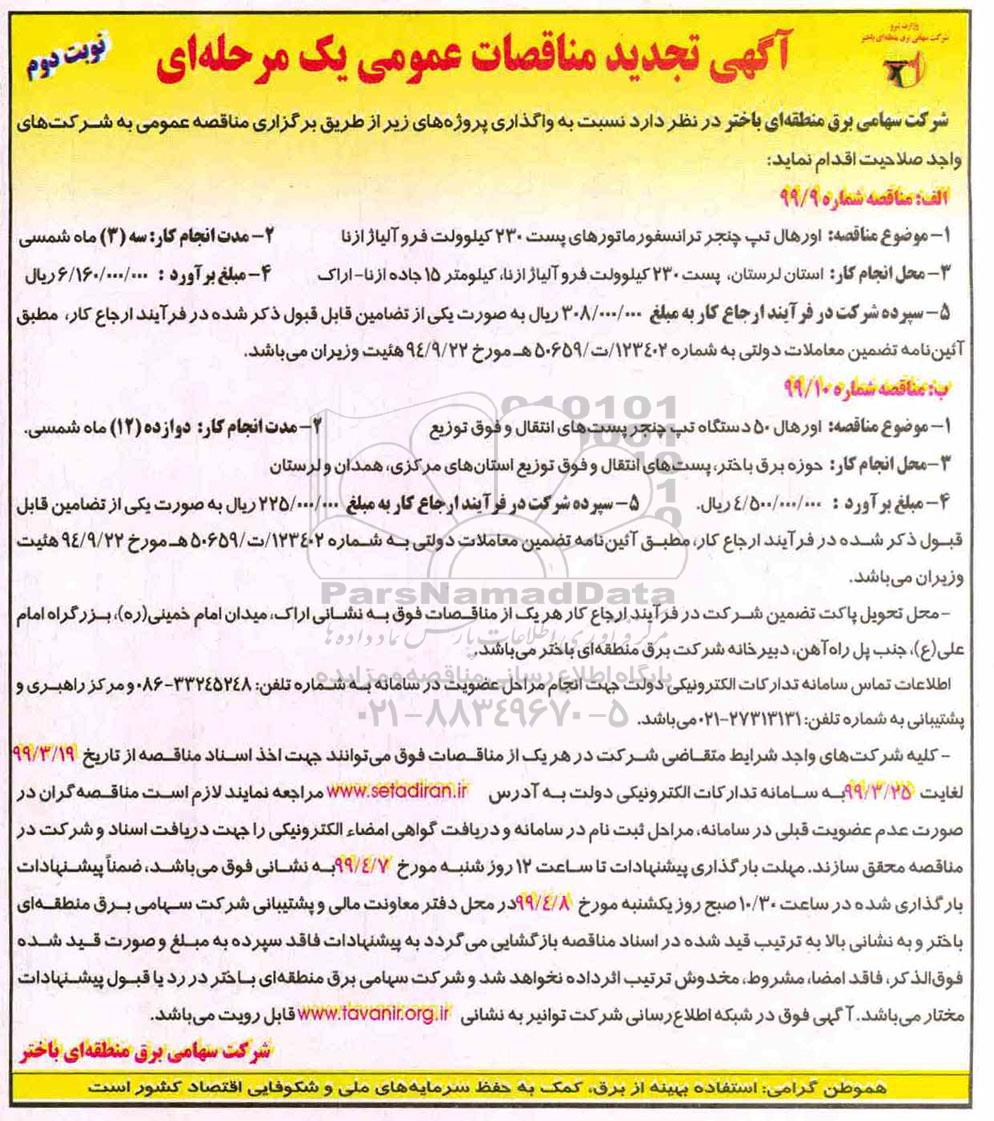 وزارت نیرو
شرکت سهامی برق منطقه‌ای باختر
آگهی تجدید مناقصات عمومی یک مرحله‌ای
نوبت دوم
شرکت سهامی برق منطقه‌ای باختر در نظر دارد نسبت به واگذاری پروژه‌های زیر از طریق برگزاری مناقصه عمومی به شرکت‌های
واجد صلاحیت اقدام نماید:
الف: مناقصه شماره ۹۹/۹
۱- موضوع مناقصه: اورهال تپ چنجر ترانسفورماتورهای پست ۲۳۰ کیلوولت فروآلیاژ ازنا ۲- مدت انجام کار: سه (۳) ماه شمسی
۳- محل انجام کار: استان لرستان، پست ۲۳۰ کیلوولت فروآلیاژ ازنا، کیلومتر ۱۵ جاده ازنا- اراک ۴- مبلغ برآورد : ۶/۱۶۰/۰۰۰/۰۰۰ ریال
۵- سپرده شرکت در فرآیند ارجاع کار به مبلغ ۳۰۸/۰۰۰/۰۰۰ ریال به صورت یکی از تضامین قابل قبول ذکر شده در فرآیند ارجاع کار، مطبق
آئین‌نامه تضمین معاملات دولتی به شماره ۱۲۳۴۰۲/ت/۵۰۶۵۹ هـ مورخ ۹۴/۹/۲۲ هئیت وزیران می‌باشد.
ب: مناقصه شماره ۹۹/۱۰
۱- موضوع مناقصه: اورهال ۵۰ دستگاه تپ چنجر پست‌های انتقال و فوق توزیع ۲- مدت انجام کار: دوازده (۱۲) ماه شمسی.
۳- محل انجام کار: حوزه برق باختر، پست‌های انتقال و فوق توزیع استان‌های مرکزی، همدان و لرستان
۴- مبلغ برآورد : ۴/۵۰۰/۰۰۰/۰۰۰ ریال. ۵- سپرده شرکت در فرآیند ارجاع کار به مبلغ ۲۲۵/۰۰۰/۰۰۰ ریال به صورت یکی از تضامین قابل
قبول ذکر شده در فرآیند ارجاع کار، مطبق آئین‌نامه تضمین معاملات دولتی به شماره ۱۲۳۴۰۲/ت/۵۰۶۵۹ هـ مورخ ۹۴/۹/۲۲ هئیت
وزیران می‌باشد.
-محل تحویل پاکت تضمین شرکت در فرآیند ارجاع کار هر یک از مناقصات فوق به نشانی اراک، میدان امام خمینی(ره)، بزرگراه امام
علی(ع)، جنب پل راه‌آهن، دبیرخانه شرکت برق منطقه‌ای باختر می‌باشد.
اطلاعات تماس سامانه تدارکات الکترونیکی دولت جهت انجام مراحل عضویت در سامانه به شماره تلفن: ۳۳۲۴۵۲۴۸-۰۸۶ و مرکز راهبری و
پشتیبانی به شماره تلفن: ۲۷۳۱۳۱۳۱-۰۲۱ می‌باشد.
- کلیه شرکت‌های واجد شرایط متقاضی شرکت در هر یک از مناقصات فوق می‌توانند جهت اخذ اسناد مناقصه از تاریخ ۹۹/۳/۱۹
لغایت ۹۹/۳/۲۵ به سامانه تدارکات الکترونیکی دولت به آدرس www.setadiran.ir مراجعه نمایند لازم است مناقصه‌گران در
صورت عدم عضویت قبلی در سامانه، مراحل ثبت نام در سامانه و دریافت گواهی امضاء الکترونیکی را جهت دریافت اسناد و شرکت در
مناقصه محقق سازند. مهلت بارگذاری پیشنهادات تا ساعت ۱۲ روز شنبه مورخ ۹۹/۴/۷ به نشانی فوق می‌باشد، ضمناً پیشنهادات
بارگذاری شده در ساعت ۱۰/۳۰ صبح روز یکشنبه مورخ ۹۹/۴/۸ در محل دفتر معاونت مالی و پشتیبانی شرکت سهامی برق منطقه‌ای
باختر و به نشانی بالا به ترتیب قید شده در اسناد مناقصه بازگشایی می‌گردد به پیشنهادات فاقد سپرده به مبلغ و صورت قید شده
فوق‌الذکر، فاقد امضا، مشروط، مخدوش ترتیب اثر داده نخواهد شد و شرکت سهامی برق منطقه‌ای باختر در رد یا قبول پیشنهادات
مختار می‌باشد. آگهی فوق در شبکه اطلاع‌رسانی شرکت توانیر به نشانی www.tavanir.org.ir قابل رویت می‌باشد.
شرکت سهامی برق منطقه‌ای باختر
هموطن گرامی: استفاده بهینه از برق، کمک به حفظ سرمایه‌های ملی و شکوفایی اقتصاد کشور است
ParsNamadData
مرکز فرآوری اطلاعات پارس نماد داده‌ها
پایگاه اطلاع رسانی مناقصه و مزایده
۰۲۱-۸۸۳۴۹۶۷۰-۵